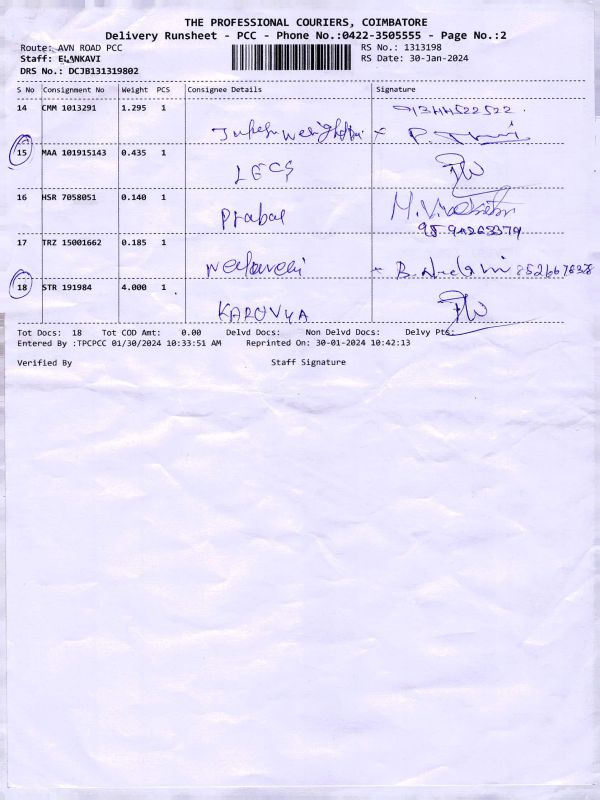 THE PROFESSIONAL COURIERS, COIMBATORE
Delivery Runsheet - PCC - Phone No.:0422-3505555 - Page No.:2
Route: AVN ROAD PCC RS No.: 1313198
Staff: ELANKAVI RS Date: 30-Jan-2024
DRS No.: DCJB131319802
S No Consignment No Weight PCS Consignee Details Signature
14 CMM 1013291 1.295 1
15 MAA 101915143 0.435 1
LECS
16 HSR 7058051 0.140 1
Prabal
17 TRZ 15001662 0.185 1
18 STR 191984 4.000 1
KAROVYA
Tot Docs: 18 Tot COD Amt: 0.00 Delvd Docs: Non Delvd Docs: Delvy Pts:
Entered By :TPCPCC 01/30/2024 10:33:51 AM Reprinted On: 30-01-2024 10:42:13
Verified By Staff Signature